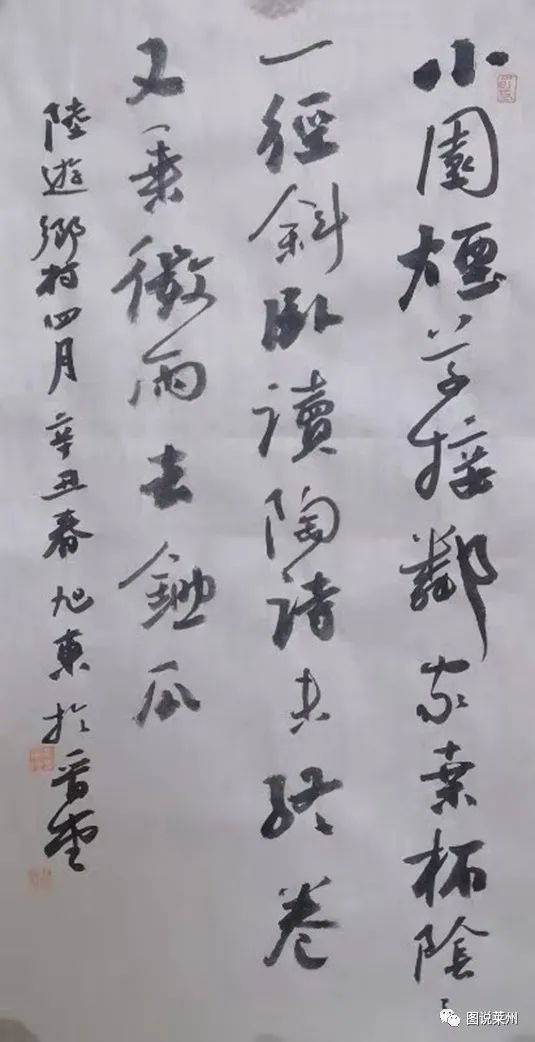 小園煙草接鄰家桑柘陰〻
一徑斜臥讀陶詩未終卷
又乘微雨去鋤瓜
陸遊鄉村四月 辛丑春旭東於
图说莱州